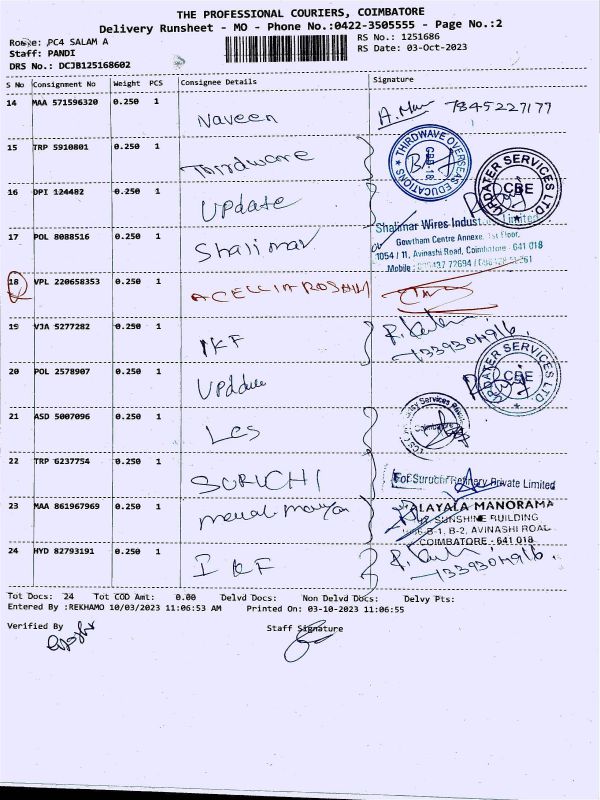 THE PROFESSIONAL COURIERS, COIMBATORE
Delivery Runsheet - MO - Phone No.:0422-3505555 - Page No.:2
Route: PC4 SALAM A
RS No.: 1251686
Staff: PANDI
RS Date: 03-Oct-2023
DRS No.: DCJB125168602
S No Consignment No Weight PCS Consignee Details Signature
14 MAA 571596320 0.250 1 Naveen 7845227177
15 TRP 5910801 0.250 1 Thirdware THIRDWAVE OVERSEAS EDUCATIONS
16 DPI 124482 0.250 1 Update UPDATER SERVICES LTD. CBE
17 POL 8088516 0.250 1 Shalimar
Shalimar Wires Industries Limited
Gowtham Centre Annexe, 1st Floor,
1054 / 11, Avinashi Road, Coimbatore - 641 018
Mobile :
18 VPL 220658353 0.250 1
19 VJA 5277282 0.250 1 IKF
20 POL 2578907 0.250 1 UPDATER SERVICES LTD. CBE
21 ASD 5007096 0.250 1 Les
22 TRP 6237754 0.250 1 SURUCHI For Suruchi Refinery Private Limited
23 MAA 861967969 0.250 1
MALAYALA MANORAMA
SUNSHINE BUILDING
B-1, B-2, AVINASHI ROAD
COIMBATORE - 641 018
24 HYD 82793191 0.250 1 IKF
Tot Docs: 24 Tot COD Amt: 0.00 Delvd Docs: Non Delvd Docs: Delvy Pts:
Entered By :REKHAMO 10/03/2023 11:06:53 AM Printed On: 03-10-2023 11:06:55
Verified By Staff Signature